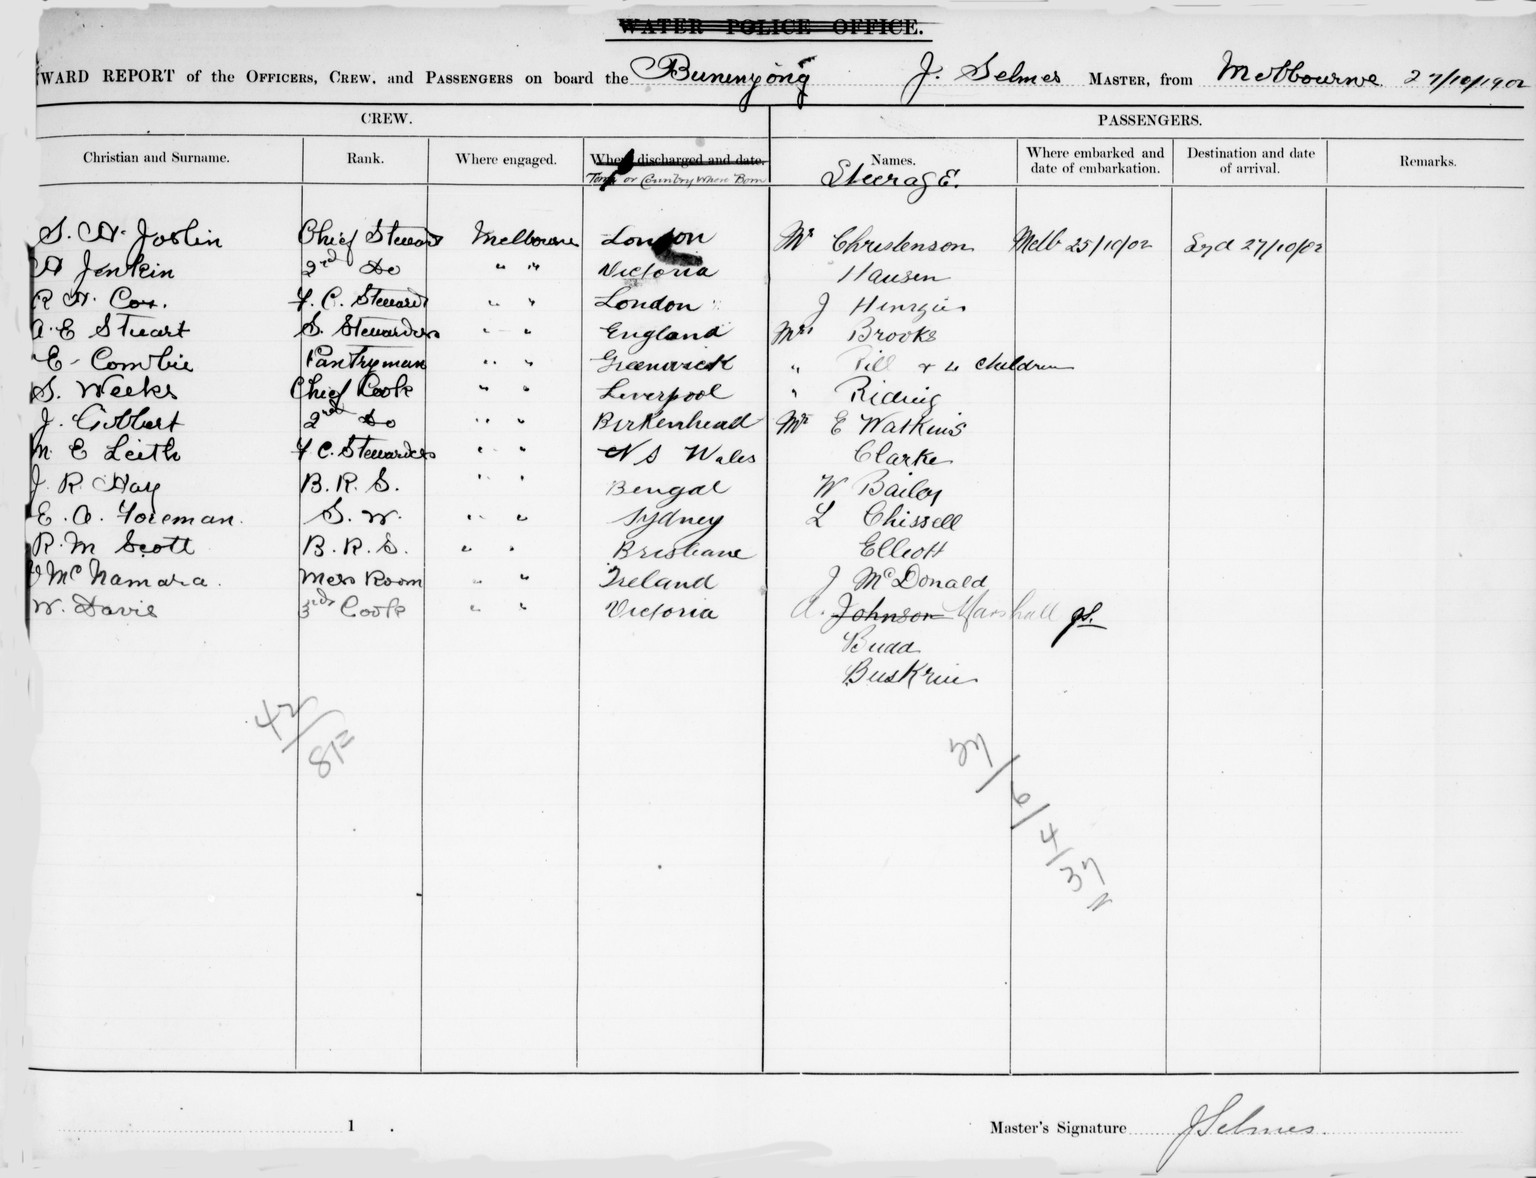 WATER POLICE OFFICE.
WARD REPORT of the OFFICERS, CREW, and PASSENGERS on board the Buninyong J. Selmes MASTER, from Melbourne 27/10/1902
CREW. PASSENGERS.
Christian and Surname. Rank. Where engaged. Where discharged and date. Names. Where embarked and date of embarkation. Destination and date of arrival. Remarks.
Town or Country where Born Steerage.
S. H. Joslin Chief Steward Melbourne London Mr Christenson Melb 25/10/02 Syd 27/10/02
A Jenkin 2nd Do " " Victoria Hansen
R H. Cox. F. C. Steward " " London J
A. E Stuart S. Stewardess " " England Mrs Brooks
E Combie Pantryman " " Greenwick " Pill + 4 children
S. Weeks Chief Cook " " Liverpool " Riding
J. Gibbert 2nd Do " " Birkenhead Mr E Watkins
M E Leith F C. Stewardess " " N S Wales Clarke
J R Hay B. R. S. " " Bengal W Bailey
E. A. Foreman. S. W. " " Sydney L Chissell
R. M Scott B. R. S. " " Brisbane Elliott
J McNamara. Mess Room " " Ireland J McDonald
W. Davis 3rd Cook " " Victoria A. Johnson Marshall JS.
Budd
Buskrin
42/8F
27/6/4/37
1 Master's Signature J Selmes.